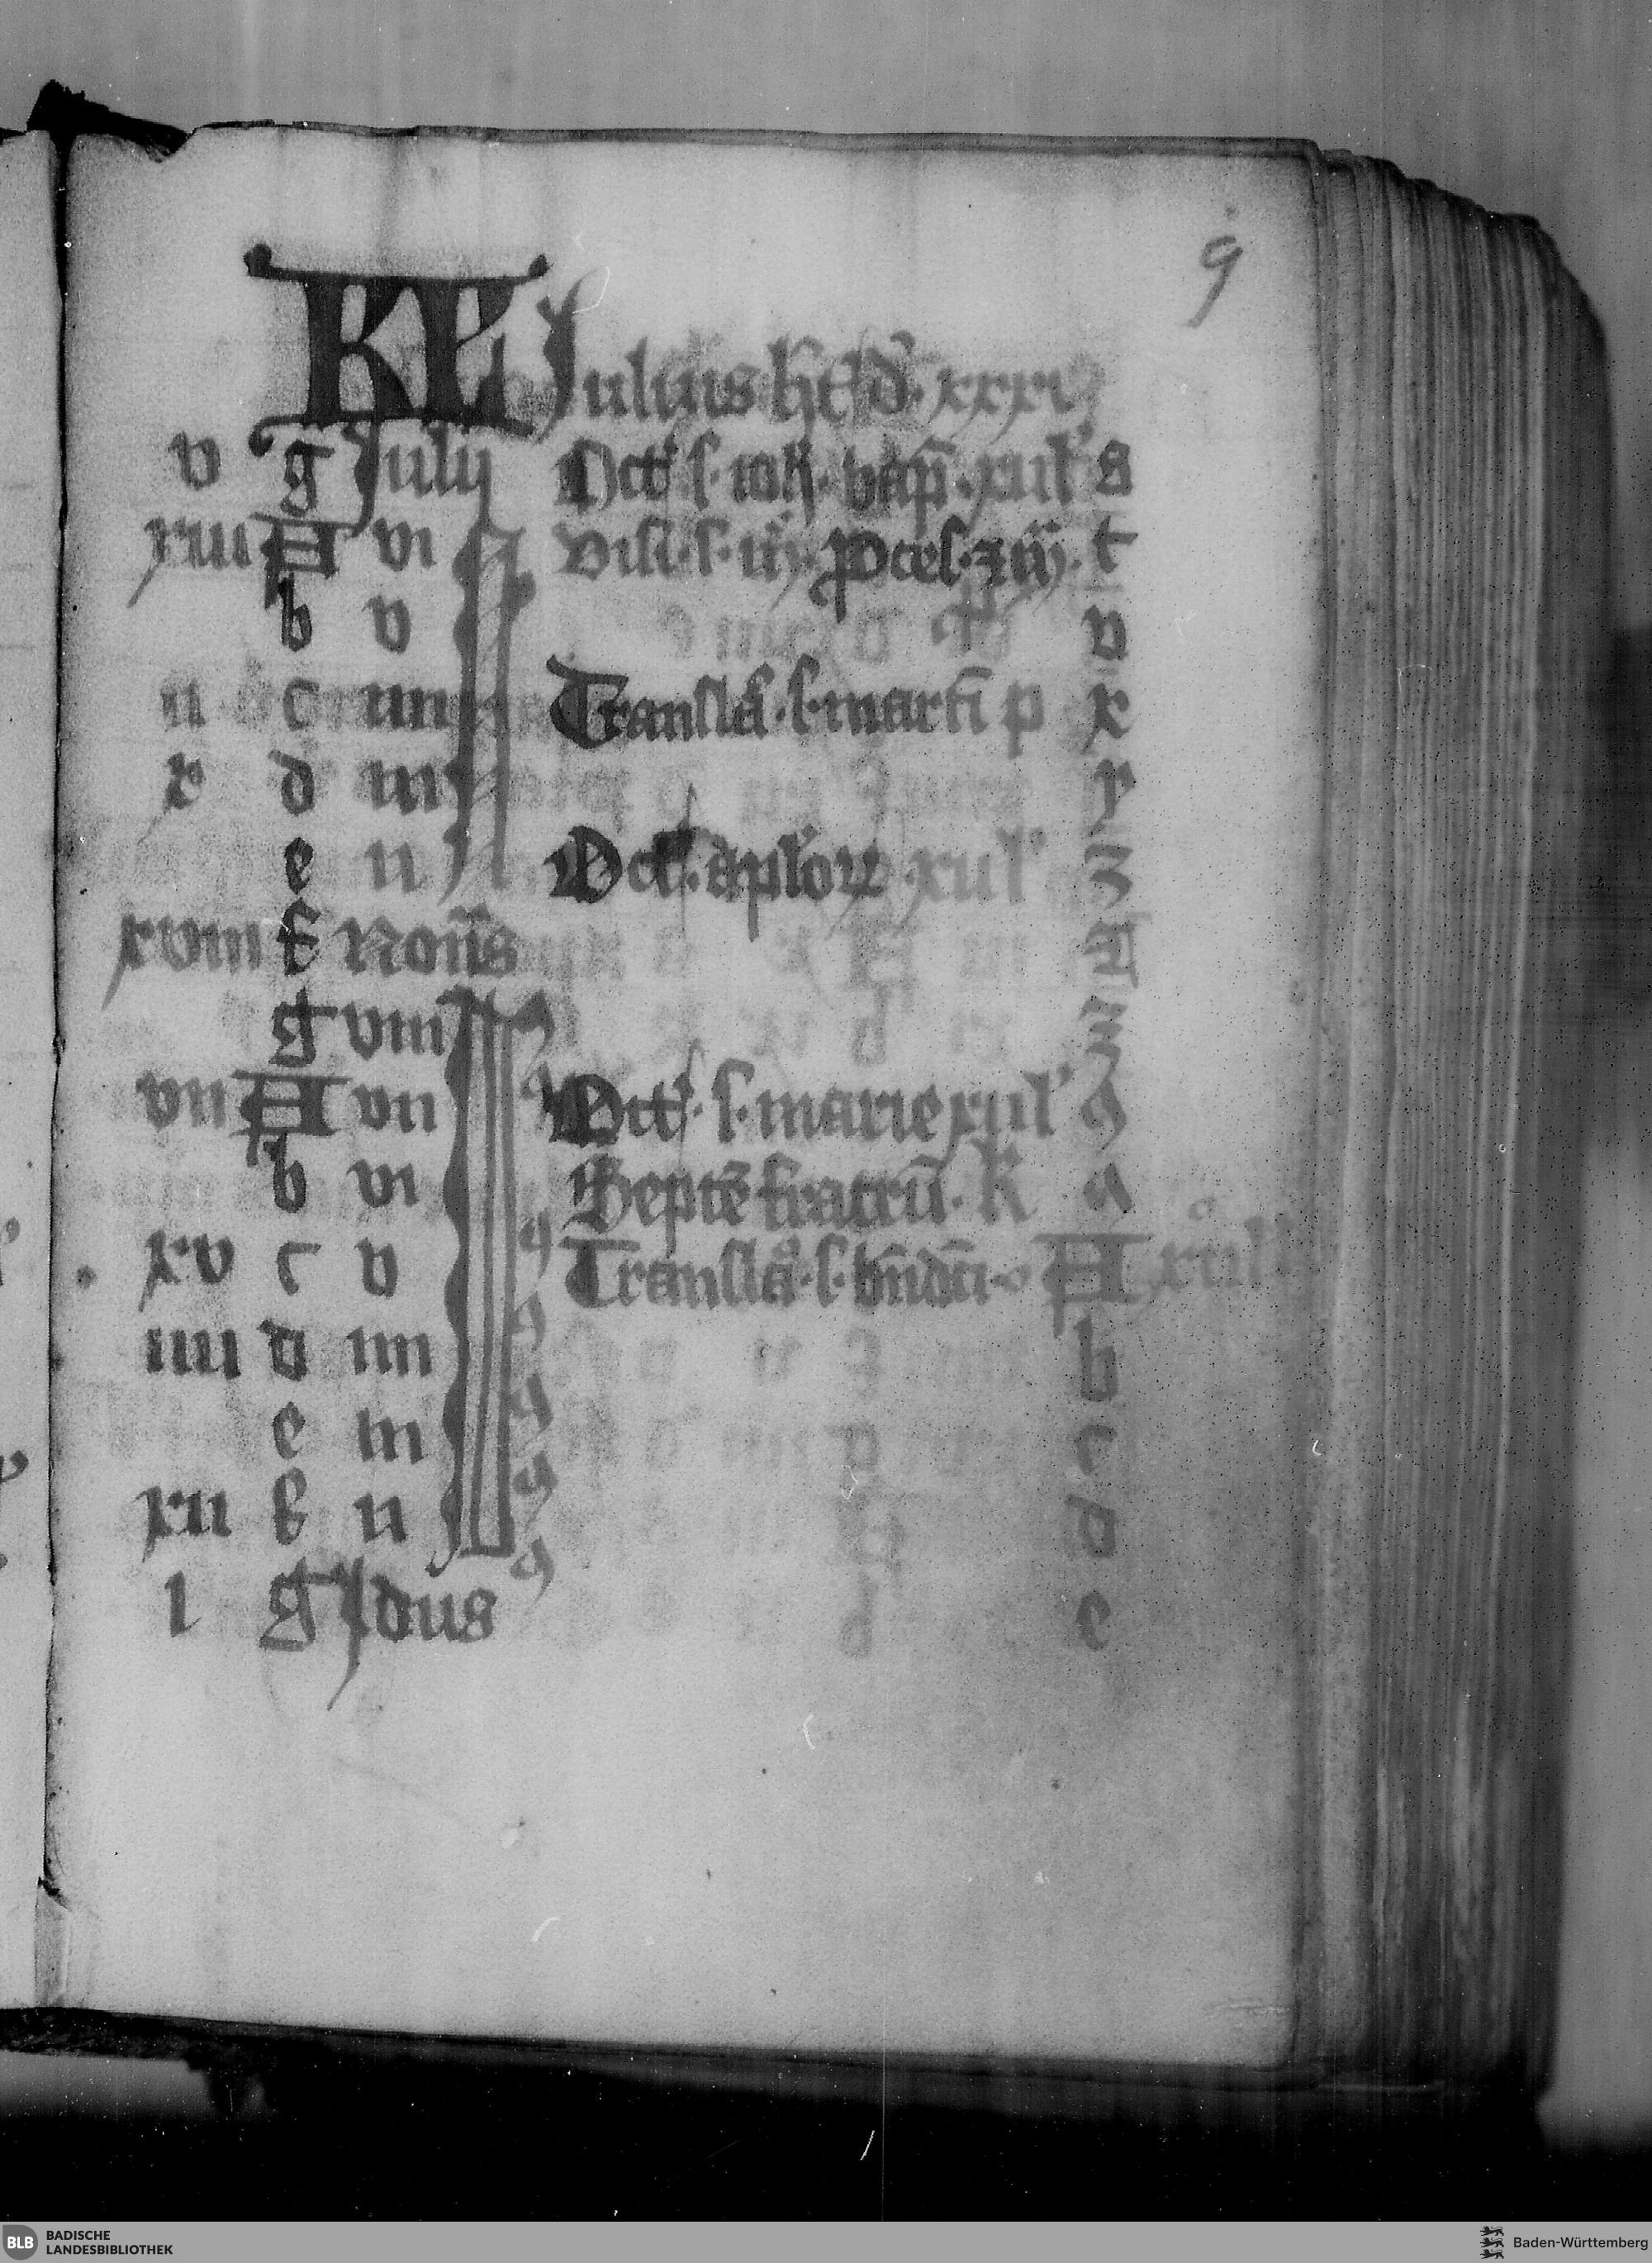 9
KL Julius ht d. xxxi
v g Julii Oct s. ioh. bap. xii l s
xiii A vi Visi. s. m. Proces. z m. t
b v v
ii c iiii Transla. s. marti p x
x d iii y
e ii Oct. aplor xii l z
xviii f Nonas
g viii
vii A vii Oct. s. marie xii l 9
b vi Septe fratru. k
xv c v Transla. s. bndci. A xii l
iiii d iiii b
e iii c
xii f ii d
i g Idus e
BLB BADISCHE LANDESBIBLIOTHEK
Baden-Württemberg